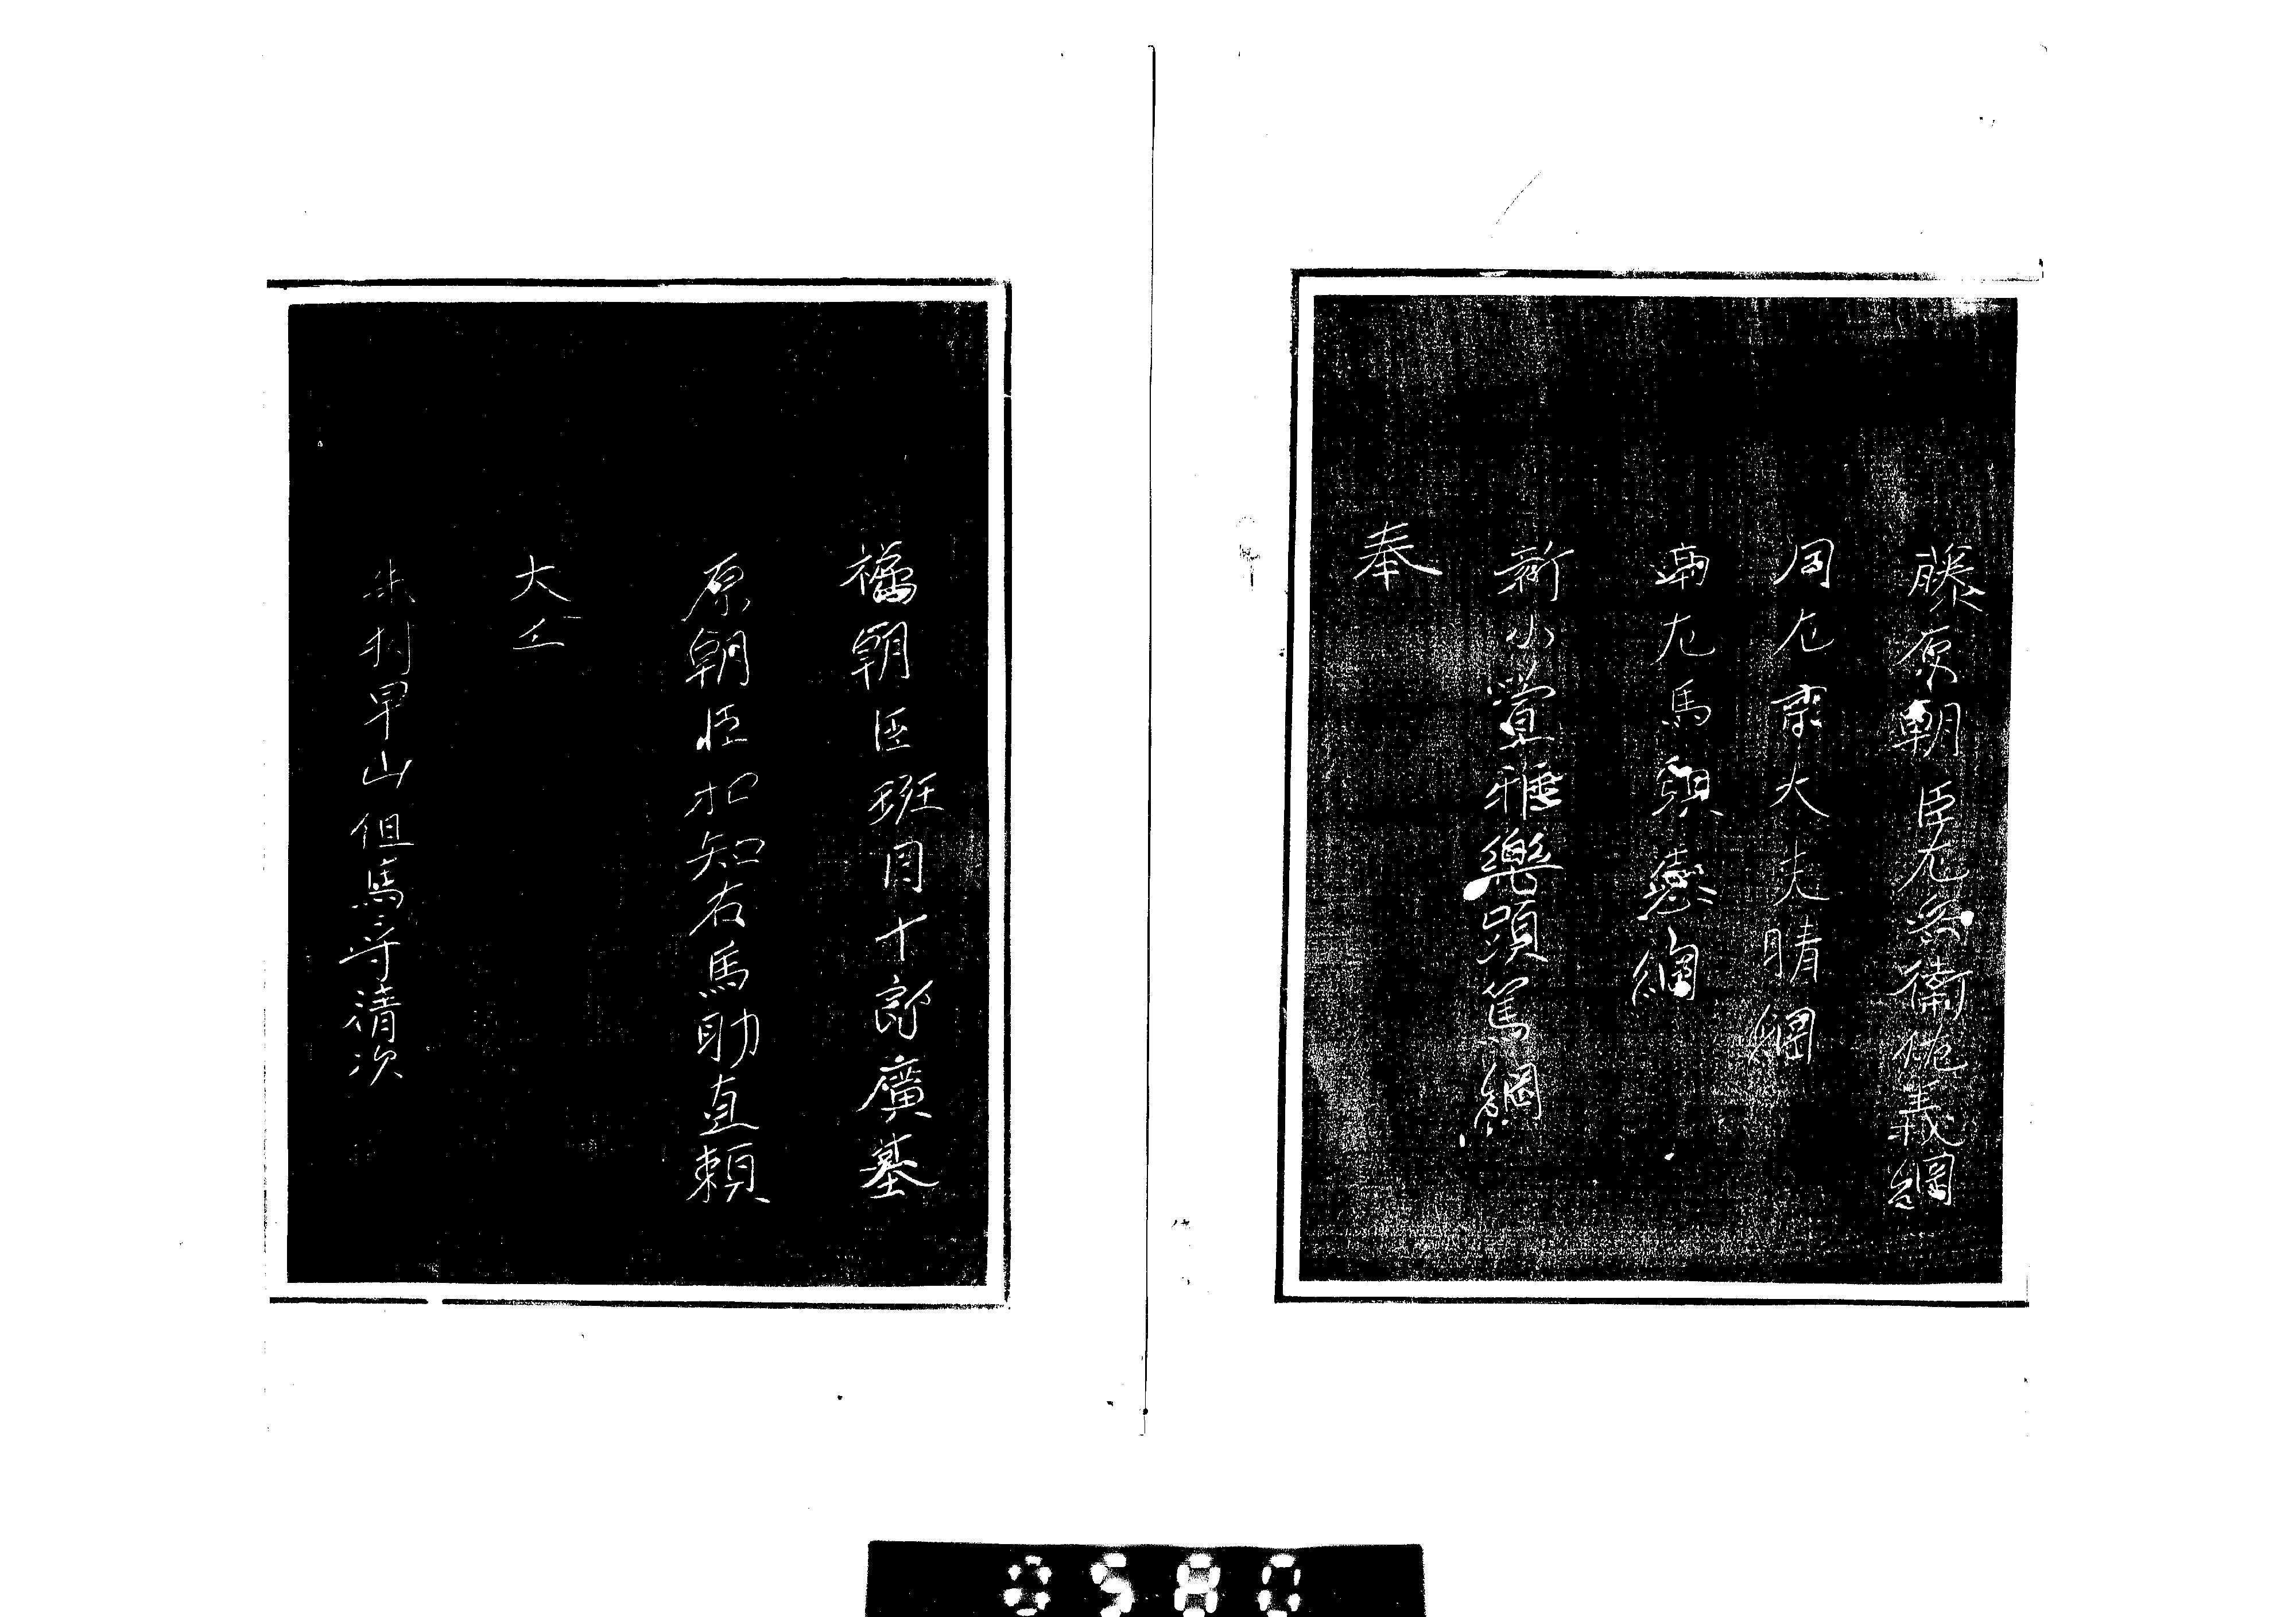 藤原朝臣左兵衛佐義綱
同左京大夫晴綱
南左馬頭懲綱
新小萱雅樂頭篤綱
奉
橘朝臣班目十郎廣基
原朝臣加知右馬助直頼
大工
早山但馬守清次
0580